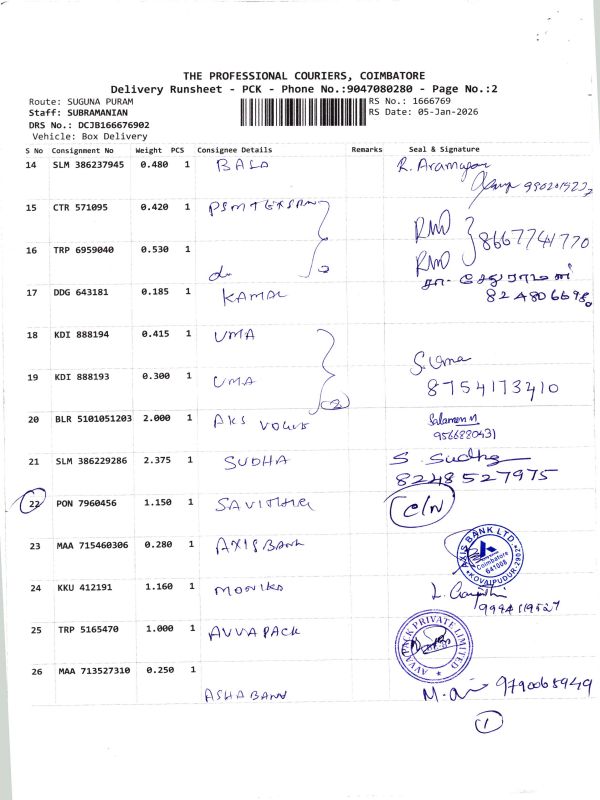 THE PROFESSIONAL COURIERS, COIMBATORE
Delivery Runsheet - PCK - Phone No.:9047080280 - Page No.:2
Route: SUGUNA PURAM
RS No.: 1666769
Staff: SUBRAMANIAN
RS Date: 05-Jan-2026
DRS No.: DCJB166676902
Vehicle: Box Delivery
S No Consignment No Weight PCS Consignee Details Remarks Seal & Signature
14 SLM 386237945 0.480 1 BALA
15 CTR 571095 0.420 1
16 TRP 6959040 0.530 1 do 2 RMD RMD 8667741770
17 DDG 643181 0.185 1 KAMAL
18 KDI 888194 0.415 1 UMA
19 KDI 888193 0.300 1 UMA (2) S. Uma
8754173410
20 BLR 5101051203 2.000 1 AKS
9566820431
21 SLM 386229286 2.375 1 SUDHA S. Sudha
8248527975
22 PON 7960456 1.150 1 SAVITHRI C/N
23 MAA 715460306 0.280 1 AXIS BANK AXIS BANK LTD. Coimbatore 641008 KOVAIPUDUR
24 KKU 412191 1.160 1 MONIKA
25 TRP 5165470 1.000 1 AVVA PACK AVVA PACK PRIVATE LIMITED
26 MAA 713527310 0.250 1
ASHA BANU 9790065949
1